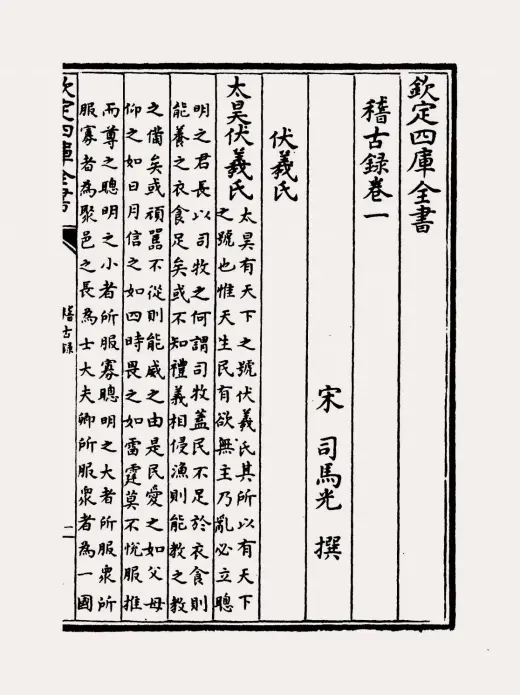 欽定四庫全書
稽古録卷一
宋 司馬光 撰
伏羲氏
太昊伏羲氏
太昊有天下之號伏羲氏其所以有天下
之號也惟天生民有欲無主乃亂必立聰
明之君長以司牧之何謂司牧蓋民不足於衣食則
能養之衣食足矣或不知禮義相侵漁則能教之教
之備矣或頑嚚不從則能威之由是民愛之如父母
仰之如日月信之如四時畏之如雷霆莫不悅服推
而尊之聰明之小者所服寡聰明之大者所服衆所
服寡者為聚邑之長為士大夫卿所服衆者為一國
欽定四庫全書
稽古録